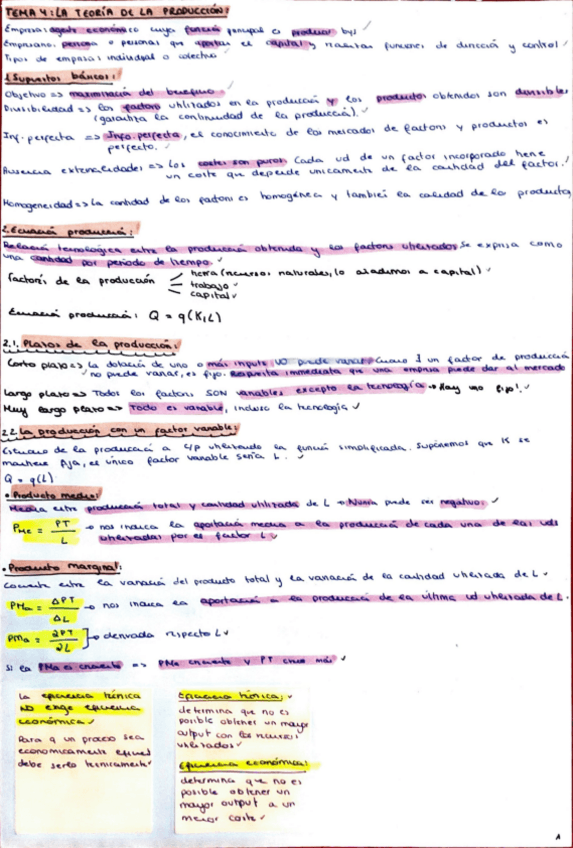 TEMA 4: LA TEORÍA DE LA PRODUCCIÓN:
Empresa: agente económico cuya función principal es producir bys
Empresario: persona o personas que aportan el capital y realizan funciones de dirección y control
Tipos de empresa: individual o colectivo
1. Supuestos básicos:
Objetivo => maximización del beneficio
Divisibilidad => los factores utilizados en la producción y los productos obtenidos son divisibles
(garantiza la continuidad de la producción).
Inf. perfecta => Info. perfecta, el conocimiento de los mercados de factores y productos es
perfecto.
Ausencia externalidades => Los costes son puros. Cada ud de un factor incorporado tiene
un coste que depende unicamente de la cantidad del factor.
Homogeneidad => La cantidad de los factores es homogénea y también la calidad de los productos
2. Ecuación producción:
Relación tecnológica entre la producción obtenida y los factores utilizados. Se expresa como
una cantidad por periodo de tiempo.
Factores de la producción
tierra (recursos naturales, lo añadimos a capital)
trabajo
capital
Ecuación producción: Q = q(K,L)
2.1. Plazos de la producción:
Corto plazo => la dotación de uno o más inputs NO puede variar. Cuando 1 un factor de producción
no puede variar, es fijo. Respuesta inmediata que una empresa puede dar al mercado
Largo plazo => Todos los factores SON variables excepto la tecnología → Hay uno fijo!
Muy largo plazo => Todo es variable, incluso la tecnología
2.2. La producción con un factor variable:
Estudio de la producción a c/p utilizando la función simplificada. Suponemos que K se
mantiene fija, el único factor variable sería L.
Q = q(L)
• Producto medio:
Media entre producción total y cantidad utilizada de L → Nunca puede ser negativo.
PMe = PT / L → nos indica la aportación media a la producción de cada una de las uds
utilizadas por el factor L
• Producto marginal:
Cociente entre la variación del producto total y la variación de la cantidad utilizada de L.
PMa = ΔPT / ΔL → nos indica la aportación a la producción de la última ud utilizada de L.
PMa = ∂PT / ∂L → derivada respecto L
Si la PMa es creciente => PMe creciente y PT crece más
La eficiencia técnica
NO exige eficiencia
económica
Para q un proceso sea
economicamente eficiente
debe serlo tecnicamente
Eficiencia técnica:
determina que no es
posible obtener un mayor
output con los recursos
utilizados
Eficiencia económica:
determina que no es
posible obtener un
mayor output a un
menor coste
A